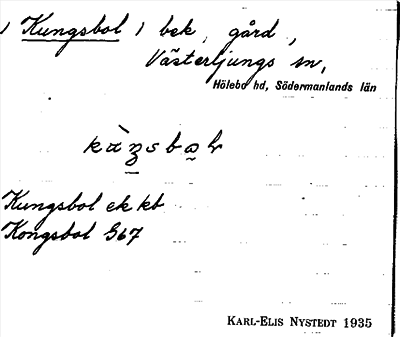 1 Kungsbol 1 bek, gård,
Västerljungs sn,
Hölebo hd, Södermanlands län
Kungsbol ek kb
Kongsbol G67
KARL-ELIS NYSTEDT 1935